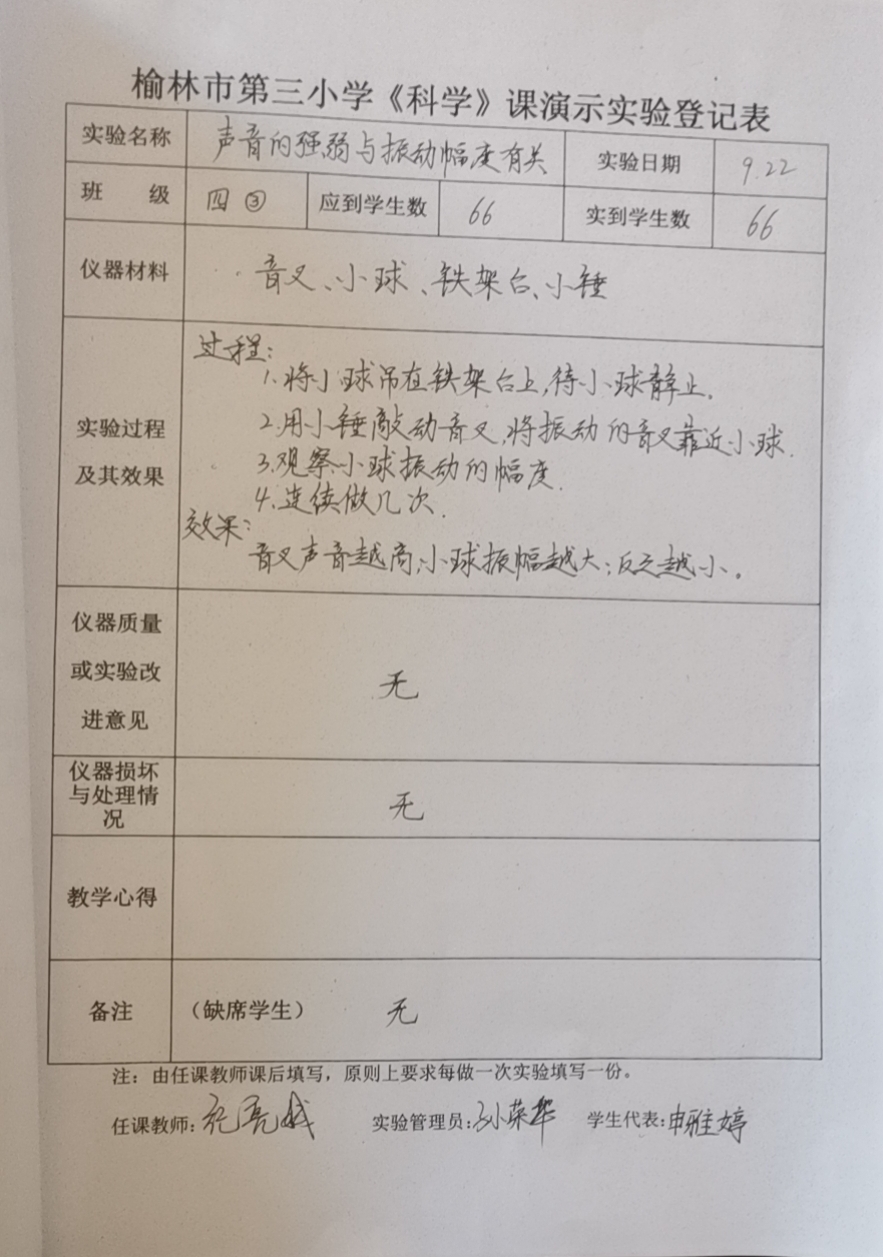 榆林市第三小学《科学》课演示实验登记表
实验名称 声音的强弱与振动幅度有关 实验日期 9.22
班 级 四③ 应到学生数 66 实到学生数 66
仪器材料 音叉、小球、铁架台、小锤
过程:
1.将小球吊在铁架台上,待小球静止.
2.用小锤敲动音叉,将振动的音叉靠近小球.
实验过程
及其效果
3.观察小球振动的幅度.
4.连续做几次.
效果:
音叉声音越高,小球振幅越大;反之越小.
仪器质量
或实验改
进意见
无
仪器损坏
与处理情
况
无
教学心得
备注 (缺席学生) 无
注:由任课教师课后填写,原则上要求每做一次实验填写一份。
任课教师: 实验管理员:孙荣华 学生代表:申雅婷